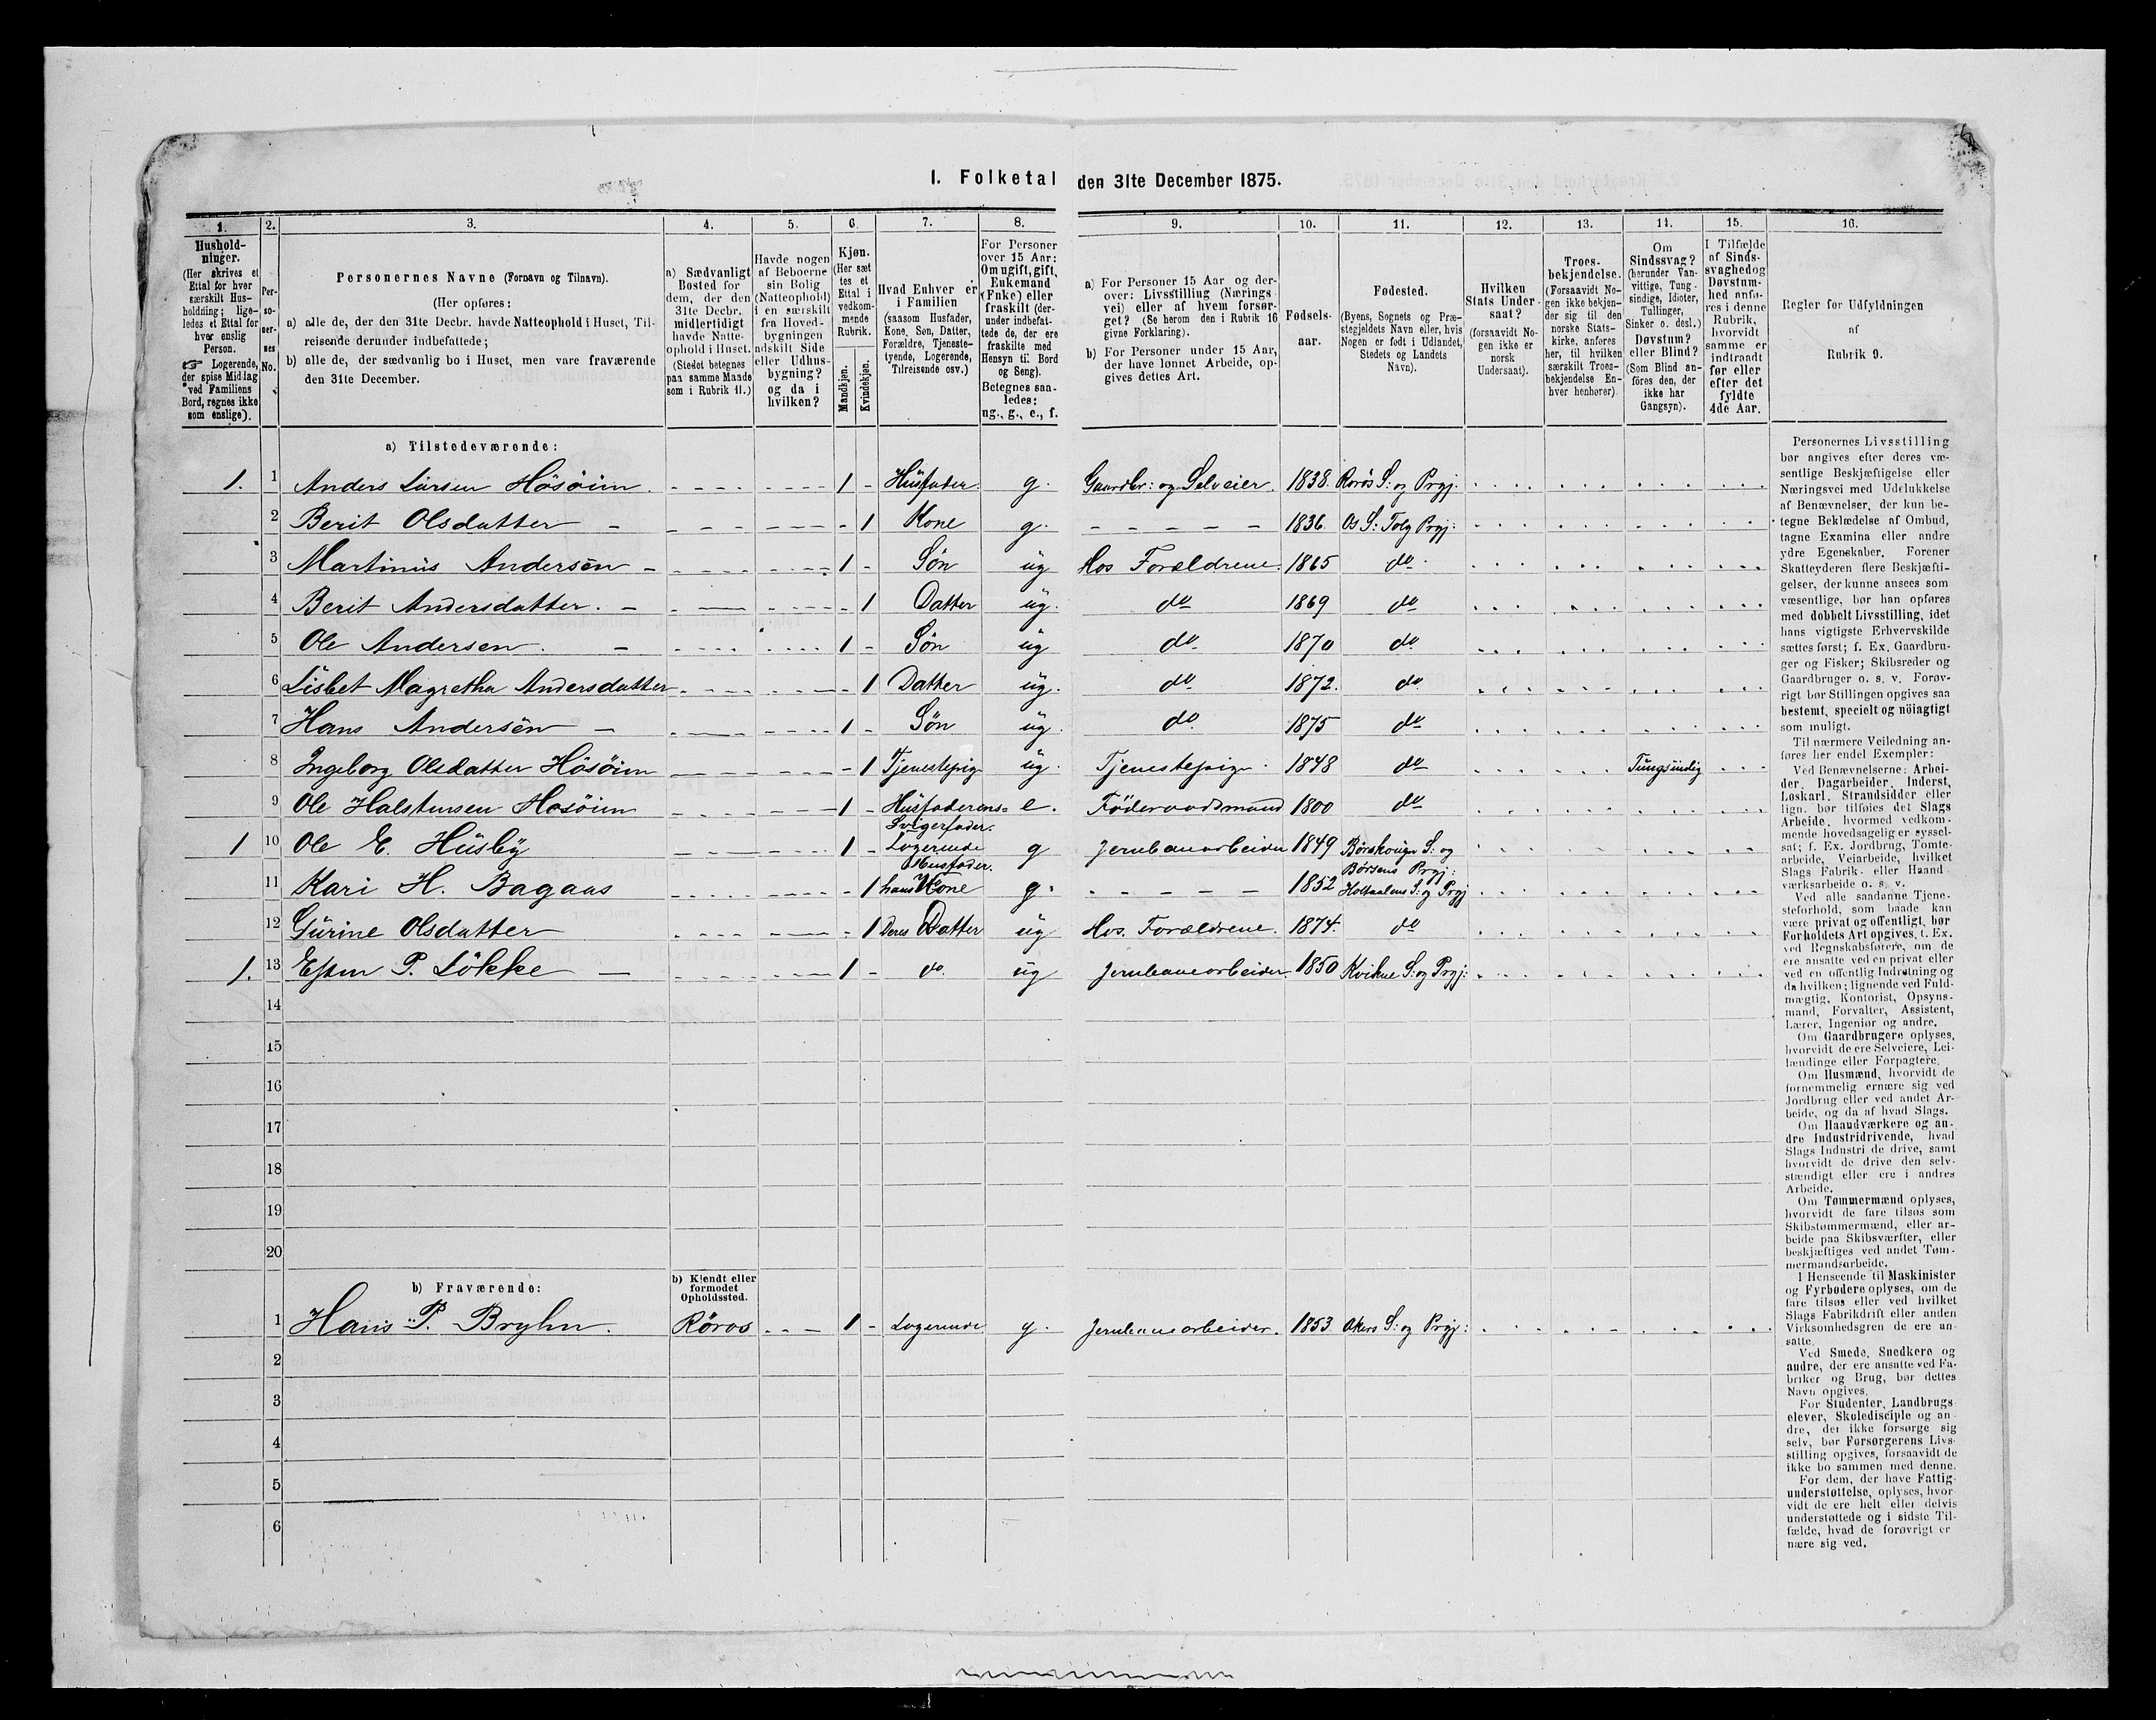 1. Folketal den 31te December 1875.
1. 2. 3. 4. 5. 6. 7. 8. 9. 10. 11. 12. 13. 14. 15. 16.
Hushold-
ninger.
(Her skrives et
Ettal for hver
særskilt Hus-
holdning; lige-
ledes et Ettal for
hver enslig
Person.
☞ Logerende,
der spise Middag
ved Familiens
Bord, regnes ikke
som enslige).
Per-
so-
ner-
nes
No.
Personernes Navne (Fornavn og Tilnavn).
(Her opføres:
a) alle de, der den 31te Decbr. havde Natteophold i Huset, Til-
reisende derunder indbefattede;
b) alle de, der sædvanlig bo i Huset, men vare fraværende
den 31te December.
a) Sædvanligt
Bosted for
dem, der den
31te Decbr.
midlertidigt
havde Natte-
ophold i Huset.
(Stedet betegnes
paa samme Maade
som i Rubrik 11.)
Havde nogen
af Beboerne
sin Bolig
(Natteophold)
i en særskilt
fra Hoved-
bygningen
adskilt Side
eller Udhus-
bygning?
og da i
hvilken?
Kjøn.
(Her sæt
tes et
Ettal i
vedkom-
mende
Rubrik.
Mandkjøn.
Kvindekjøn.
Hvad Enhver er
i Familien
(saasom Husfader,
Kone, Søn, Datter,
Forældre, Tjeneste-
tyende, Logerende,
Tilreisende osv.)
For Personer
over 15 Aar:
Om ugift, gift,
Enkemand
(Enke) eller
fraskilt (der-
under indbefat-
tede de, der ere
fraskilte med
Hensyn til Bord
og Seng).
Betegnes saa-
ledes:
ug., g., e., f.
a) For Personer 15 Aar og der-
over: Livsstilling (Nærings-
vei) eller af hvem forsør-
get? (Se herom den i Rubrik 16
givne Forklaring).
b) For Personer under 15 Aar,
der have lønnet Arbeide, op-
gives dettes Art.
Fødsels-
aar.
Fødested.
(Byens, Sognets og Præ-
stegjeldets Navn eller, hvis
Nogen er født i Udlandet,
Stedets og Landets
Navn).
Hvilken
Stats Under-
saat?
(forsaavidt No-
gen ikke er
norsk
Undersaat).
Troes-
bekjendelse.
(Forsaavidt No-
gen ikke bekjen-
der sig til den
norske Stats-
kirke, anføres
her, til hvilken
særskilt Troes-
bekjendelse En-
hver henhører).
Om
Sindssvag?
(herunder Van-
vittige, Tung-
sindige, Idioter,
Tullinger,
Sinker o. desl.)
Døvstum?
eller Blind?
(Som Blind an-
føres den, der
ikke har
Gangsyn).
I Tilfælde
af Sinds-
svaghed og
Døvstum-
hed anfø-
res i denne
Rubrik,
hvorvidt
samme er
indtraadt
før eller
efter det
fyldte
4de Aar.
Regler for Udfyldningen
af
Rubrik 9.
a) Tilstedeværende:
1. 1 Anders Larsen Hösöien. 1 - Husfader. g. Gaardbr: og Selveier. 1838. Rorös S: og Prgj.
2 Berit Olsdatter - 1 Kone g. 1836. Os S: Tolg Prgj:
3 Martinus Andersen 1 - Søn ug Hos Forældrene. 1865 do
4 Berit Andersdatter. - 1 Datter ug. do 1869 do
5 Ole Andersen. 1 - Søn ug do 1870 do
6 Lisbet Magretha Andersdatter - 1 Datter ug. do 1872. do
7 Hans Andersen 1 - Søn ug. do 1875 do
8 Ingeborg Olsdatter Hösöien - 1 Tjenestepige ug. Tjenestepige 1848 do Tungsindig
9 Ole Halstensen Hosöien 1 - Husfaderens= Svigerfader. e. Föderaadsmand 1800 do
1 10 Ole E. Husby 1 - Logerende Husfader. g Jernbanearbeider 1849 Börskongn S: og Börsens Prgj:
11 Kari H. Bagaas - 1 hans Kone g. 1852 Holtaalens S: og Prgj
12 Gurine Olsdatter - 1 Deres Datter ug Hos. Forældrene. 1874. do
1. 13 Espen P. Lökke 1 - do. ug Jernbanearbeider. 1850 Kvikne S: og Prgj:
14
15
16
17
18
19
20
b) Fraværende:
b) Kjendt eller
formodet
Opholdssted.
1 Hans P. Bryhn. Röros 1 - Logerende g. Jernbanearbeider. 1853. Akers S: og Prgj:
2
3
4
5
6
Personernes Livsstilling
bør angives efter deres væ-
sentlige Beskjæftigelse eller
Næringsvei med Udelukkelse
af Benævnelser, der kun be-
tegne Beklædelse af Ombud,
tagne Examina eller andre
ydre Egenskaber. Forener
Skatteyderen flere Beskjæfti-
gelser, der kunne ansees som
væsentlige, bør han opføres
med dobbelt Livsstilling, idet
hans vigtigste Erhvervskilde
sættes først; f. Ex. Gaardbru-
ger og Fisker; Skibsreder og
Gaardbruger o. s. v. Forøv-
rigt bør Stillingen opgives saa
bestemt, specielt og nöiagtigt
som muligt.
Til nærmere Veiledning an-
føres her endel Exempler:
Ved Benævnelserne: Arbei-
der, Dagarbeider, Inderst,
Løskarl, Strandsidder eller
lign. bør tilføies det Slags
Arbeide, hvormed vedkom-
mende hovedsagelig er syssel-
sat; f. Ex. Jordbrug, Tomte-
arbeide, Veiarbeide, hvilket
Slags Fabrik- eller Haand-
værksarbeide o. s. v.
Ved alle saadanne Tjene-
steforhold, som baade kan
være privat og offentligt, bør
Forholdets Art opgives, t. Ex.
ved Regnskabsførere, om de
ere ansatte ved en privat eller
ved en offentlig Indretning og
da hvilken; lignende ved Fuld-
mægtig, Kontorist, Opsyns-
mand, Forvalter, Assistent,
Lærer, Ingeniør og andre.
Om Gaardbrugere oplyses,
hvorvidt de ere Selveiere, Lei-
lændinge eller Forpagtere.
Om Husmænd, hvorvidt de
fornemmelig ernære sig ved
Jordbrug eller ved andet Ar-
beide, og da af hvad Slags.
Om Haandværkere og an-
dre Industridrivende, hvad
Slags Industri de drive, samt
hvorvidt de drive den selv-
stændigt eller ere i andres
Arbeide.
Om Tømmermænd oplyses,
hvorvidt de fare tilsøs som
Skibstømmermænd, eller ar-
beide paa Skibsværfter, eller
beskjæftiges ved andet Tøm-
mermandsarbeide.
I Henseende til Maskinister
og Fyrbødere oplyses, om de
fare tilsøs eller ved hvilket
Slags Fabrikdrift eller anden
Virksomhedsgren de ere an-
satte.
Ved Smede, Snedkere og
andre, der ere ansatte ved Fa-
briker og Brug, bør dettes
Navn opgives.
For Studenter, Landbrugs-
elever, Skoledisciple og an-
dre, der ikke forsørge sig
selv, bør Forsørgerens Livs-
stilling opgives, forsaavidt de
ikke bo sammen med denne.
For dem, der have Fattig-
understøttelse, oplyses, hvor-
vidt de ere helt eller delvis
understøttede og i sidste Til-
fælde, hvad de forøvrigt er
nære sig ved.